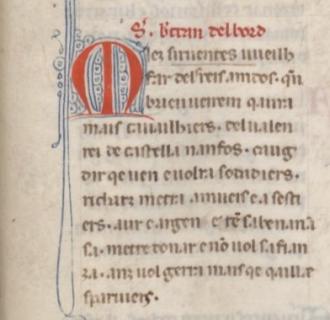 S'. b'tran delbord
Mei siruentes uueilh
far dels reis amdos. q̃n
brieu ueirem q̃aura
mais cauailhiers. del ualen
rei de castella nanfos. caug
dir qe uen e uolra soudadiers.
richartz metra amueis e a sesti
ers. aur e argen e tẽ sa benanã
sa. metre e donar e nõ uol sa fian
za. anz uol gerra mais qe quaill'e
sparuiers.